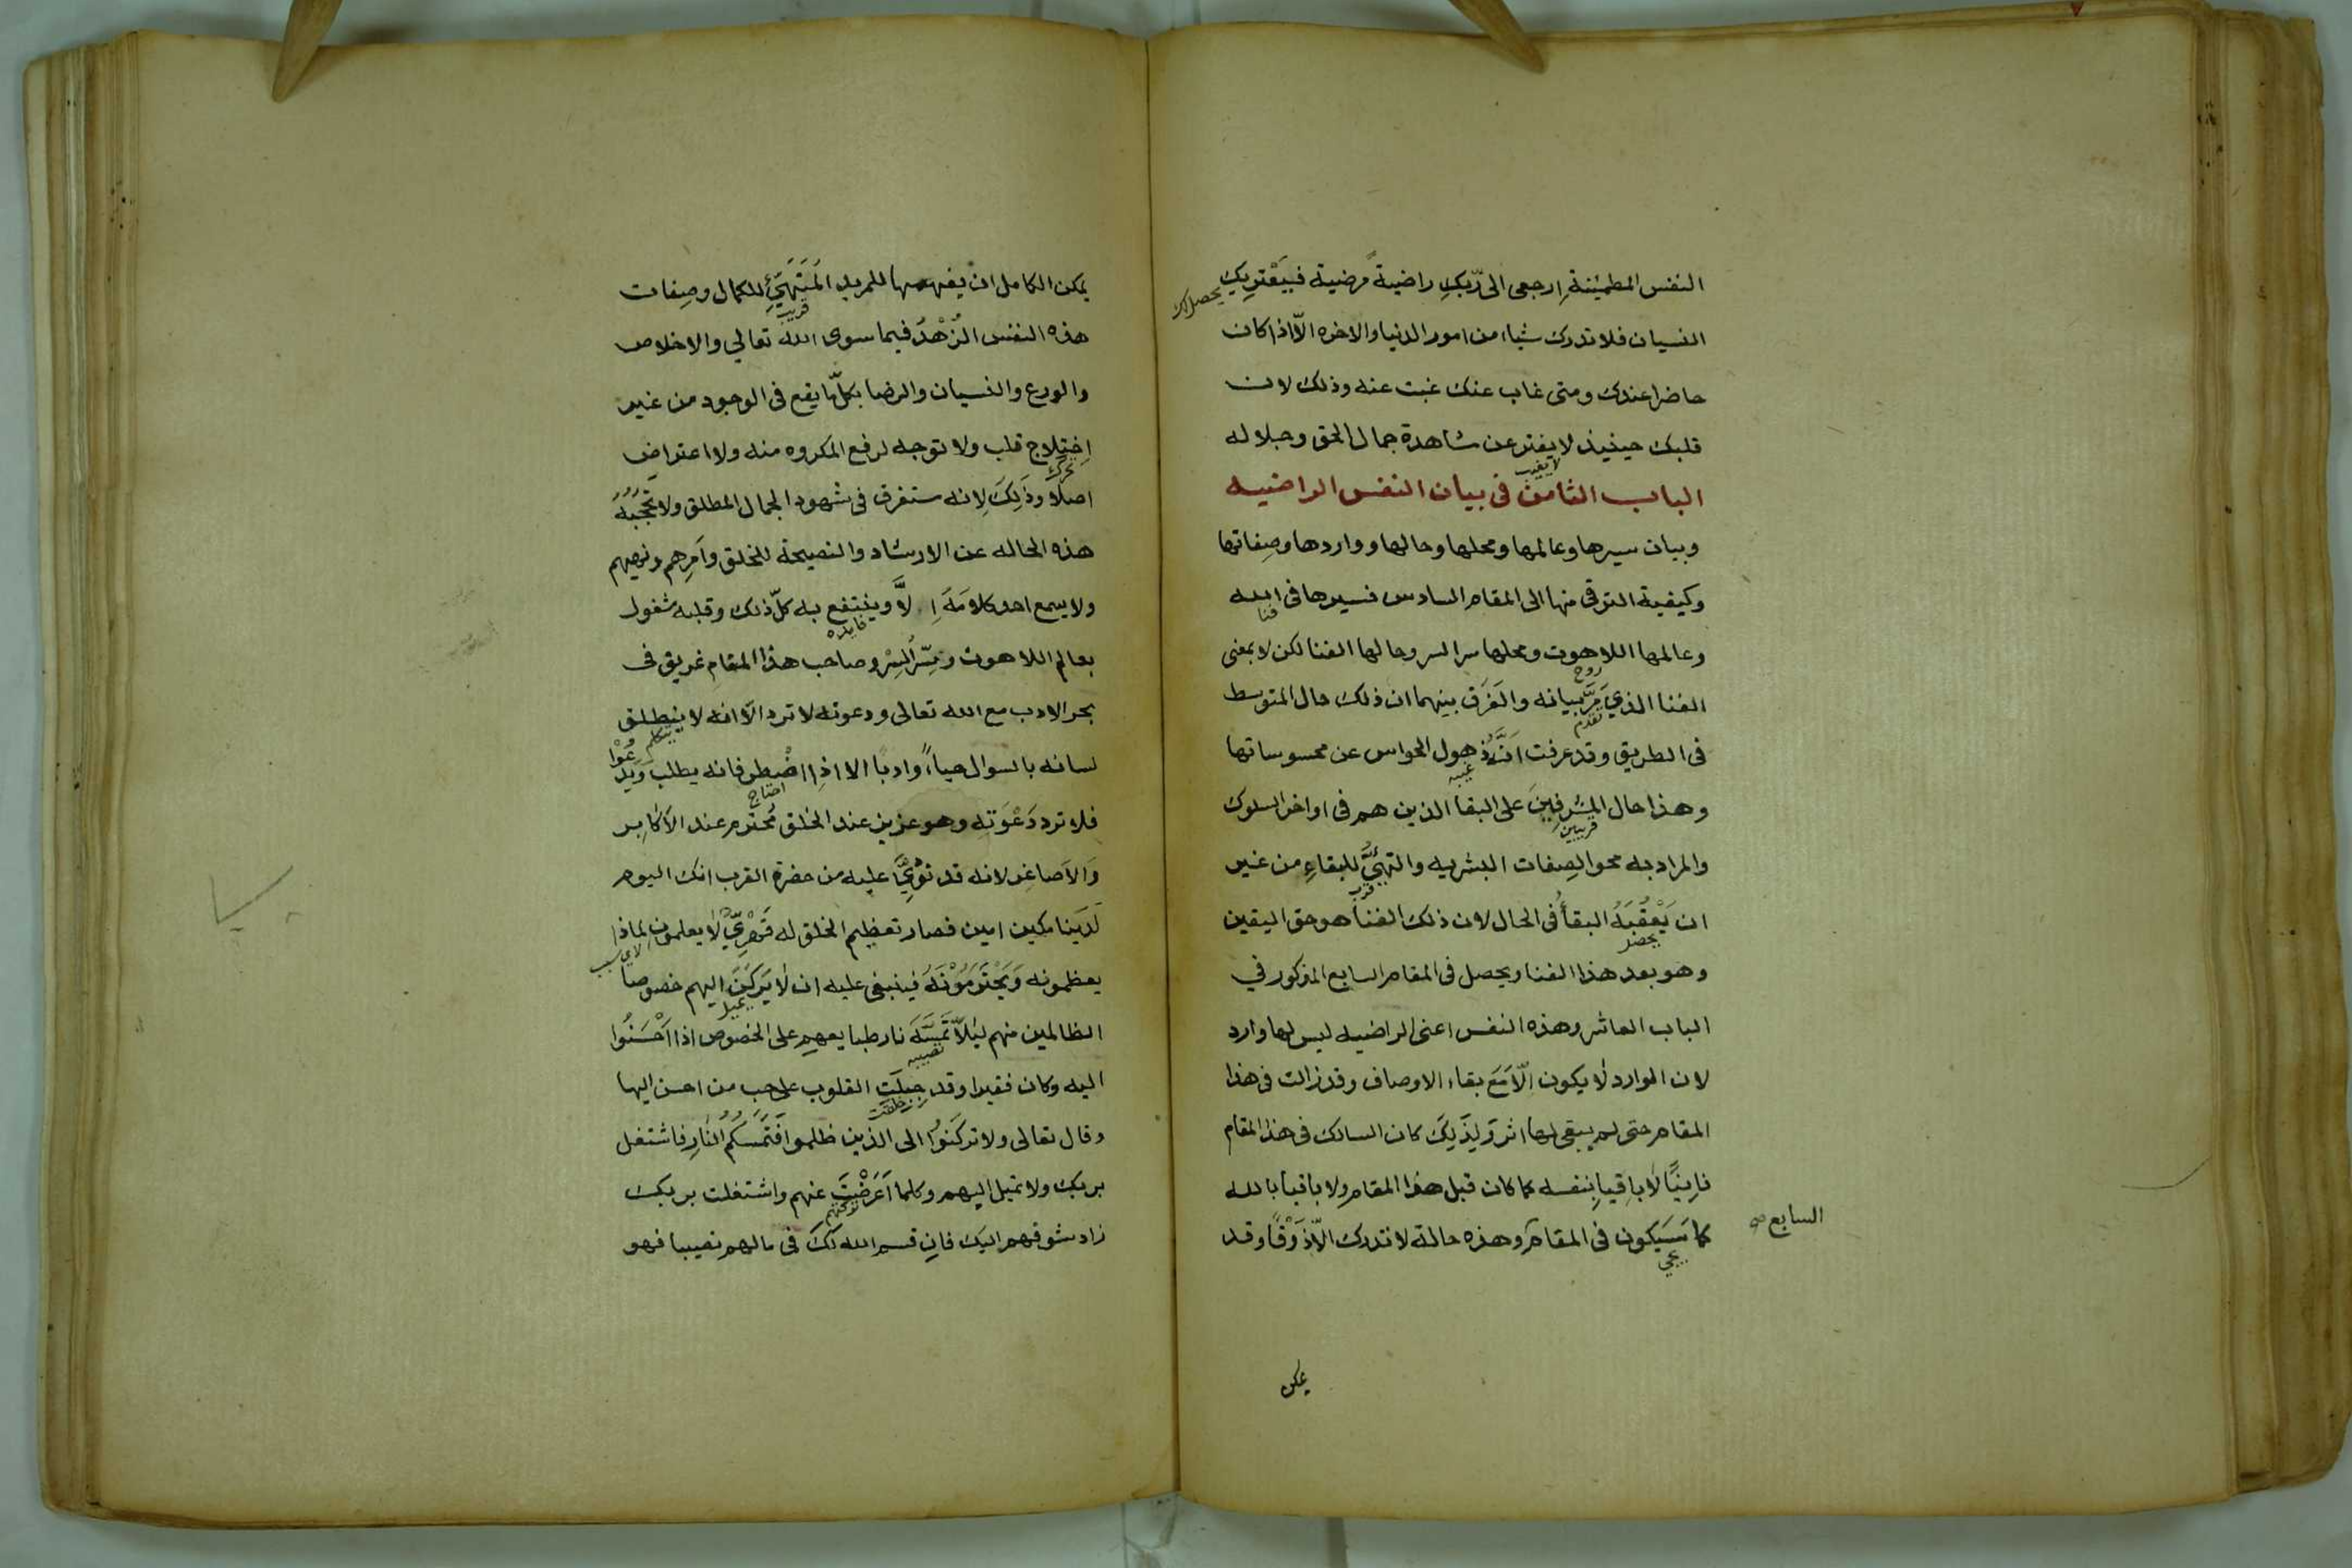 النفس المطمئنة اِرجعى الى ربّكِ راضيةً مرضية فيَعْتريك
يحصل لك
النسيان فلا تدرك شياء من امور الدنيا والاخره الّا اذا كان
حاضرا عندك ومتى غاب عنك غبت عنه وذلك لان
قلبك حينيذ لا يفتر عن مشاهدة جمال الحق وجلاله
لا يغيب
الباب الثامن فى بيان النفس الراضيه
وبيان سيرها وعالمها ومحلها وحالها وواردها وصِفاتها
وكيفية الترقى منها الى المقام السادس فسيرها فى الله
فنا
وعالمها اللاهوت ومحلها سر السر وحالها الفنا لكن لا بمعنى
روح
الفنا الذي مَرَّ بيانه والفَرَق بينهما ان ذلك حال المتوسط
تقدم
فى الطريق وقد عرفت اَنَّهُ ذهول الحواس عن محسوساتها
غيبه
وهذا حال المشرفِينَ على البقا الذين هم فى اواخر السلوك
قريبين
والمراد به محو الصِفات البشريه والتهيُّئ للبقاءِ من غير
قرب
ان يَعْقُبَهُ البقأُ فى الحال لان ذلك الفنا هو حق اليقين
يحصل
وهو بعد هذا الفنا ويحصل فى المقام السابع المذكور في
الباب العاشر وهذه النفس اعنى الراضيه ليس لها وارد
لان الوارد لا يكون اِلّا مَعَ بقاء الاوصاف وقد زالت فى هذا
المقام حتى لم يبقى لها اثر وَلِذَلِكَ كان السالك فى هذا المقام
فانِيًا لا باقيا بِنفسه كما كان قبل هذا المقام ولا باقيا بالله
كما سَيَكون فى المقام وهذه حالة لا تدرك الّا ذَوْقًا وقد
السابع صح
يجي
يمكن
يمكن الكامل ان يفهمها للمريد المُتَهَيِّئ للكمال وصِفات
قريب
هذه النفس الزُهْدُ فيما سوى الله تعالي والاخلاص
والورع والنسيان والرضا بكلّ ما يقع فى الوجود من غير
اِختِلاج قلب ولا توجه لرفع المكروه منه ولا اعتراض
تحرك
اصلًا وذَلِكَ لِانه ستغرق فى شهود الجمال المطلق ولا تَحْجُبُهُ
هذه الحاله عن الارشاد والنصيحة للخلق وأمرِهم ونهيهم
ولا يسمع احد كلامَهُ اِلَّا وينتفع به كلّ ذلك وقلبه مشغول
فايده
بعالم اللاهوت وسِرّ السِر وصاحب هذا المقامِ غريق فى
بحر الادب مع الله تعالى ودعوته لا ترد الّا انه لا ينطلق
يتكلم
لسانه بالسوال حياءً وادبًا الا اذا اضْطر فانه يطلب وَيَدْعُوا
احتاج
فلا ترد دَعْوَتِه وهو عزيز عند الخلق مُحترم عند الاَكابِر
وَالاَصاغر لانه قد نُودِيَ عليه من حضرة القرب انك اليوم
لَدَينا مكين امين فصار تعظيم الخلق له قَهْرِيّ لا يعلمون لماذا
لاي سبب
يعظمونه وَيَحْتَرِمُوْنَهُ فينبغى عليه ان لا يَركَنَ اليهم خصوصا
يميل
الظالمين منهم ليَلّا تَمَسَّهُ نار طبايعهم على الخصوص اذا اَحْسَنُوا
تصيبه
اليه وكان فقيرا وقد جبِلَتِ القلوب على حب من احسن اليها
خلقت
وقال تعالى ولا تركَنُوا الى الذين ظلموا فَتَمَسَّكُمُ النار فاشتغل
بربك ولا تميل اليهم وكلما اَعْرَضْتَ عنهم واشتغلت بربك
تركتهم
زاد شوقهم اليك فان قسم الله لكَ فى مالهم نصيبا فهو